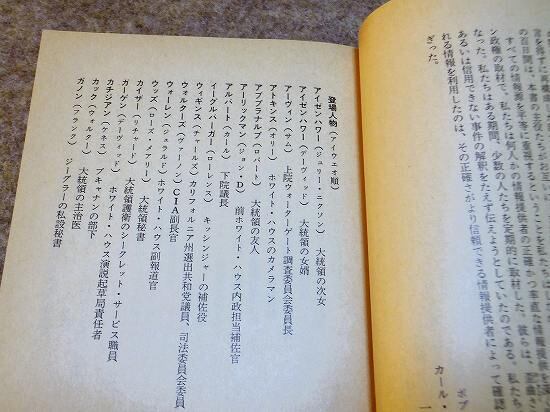 言を殆ど再構
の百日間は、本書の主役たちがお互い
すべての情報源を平等に重視するということを私たちは
ン政権の取材で、私たちは何人かの情報提供者の正確かつ率直な情報
なった。私たちはある期間、少数の人たちを定期的に取材した。彼らは、歪曲
あるいは信用できない事件の解釈をたえず伝えようとしていたのである。私たち
れる情報を利用したのは、その正確さがより信頼できる情報提供者によって確認
ぎった。
ボブ
カール・
登場人物(アイウエオ順)
アイゼンハワー(ジュリー・ニクソン) 大統領の次女
アイゼンハワー(デーヴィッド) 大統領の女婿
アーヴィン(サム) 上院ウォーターゲート調査委員会委員長
アトキンス(オリー) ホワイト・ハウスのカメラマン
アブプラナルプ(ロバート) 大統領の友人
アーリックマン(ジョン・D) 前ホワイト・ハウス内政担当補佐官
アルバート(カール) 下院議長
イーグルバーガー(ローレンス) キッシンジャーの補佐役
ウィギンス(チャールズ) カリフォルニア州選出共和党議員、司法委員会委員
ウォルターズ(ヴァーノン) CIA副長官
ウォーレン(ジェラルド) ホワイト・ハウス副報道官
ウッズ(ローズ・メアリー) 大統領秘書
カイザー(リチャード) 大統領護衛のシークレット・サービス職員
ガーゲン(デーヴィッド) ホワイト・ハウス演説起草局責任者
カチジアン(ケネス) ブキャナンの部下
カック(ウォルター) 大統領の主治医
ガノン(フランク) ジーグラーの私設秘書